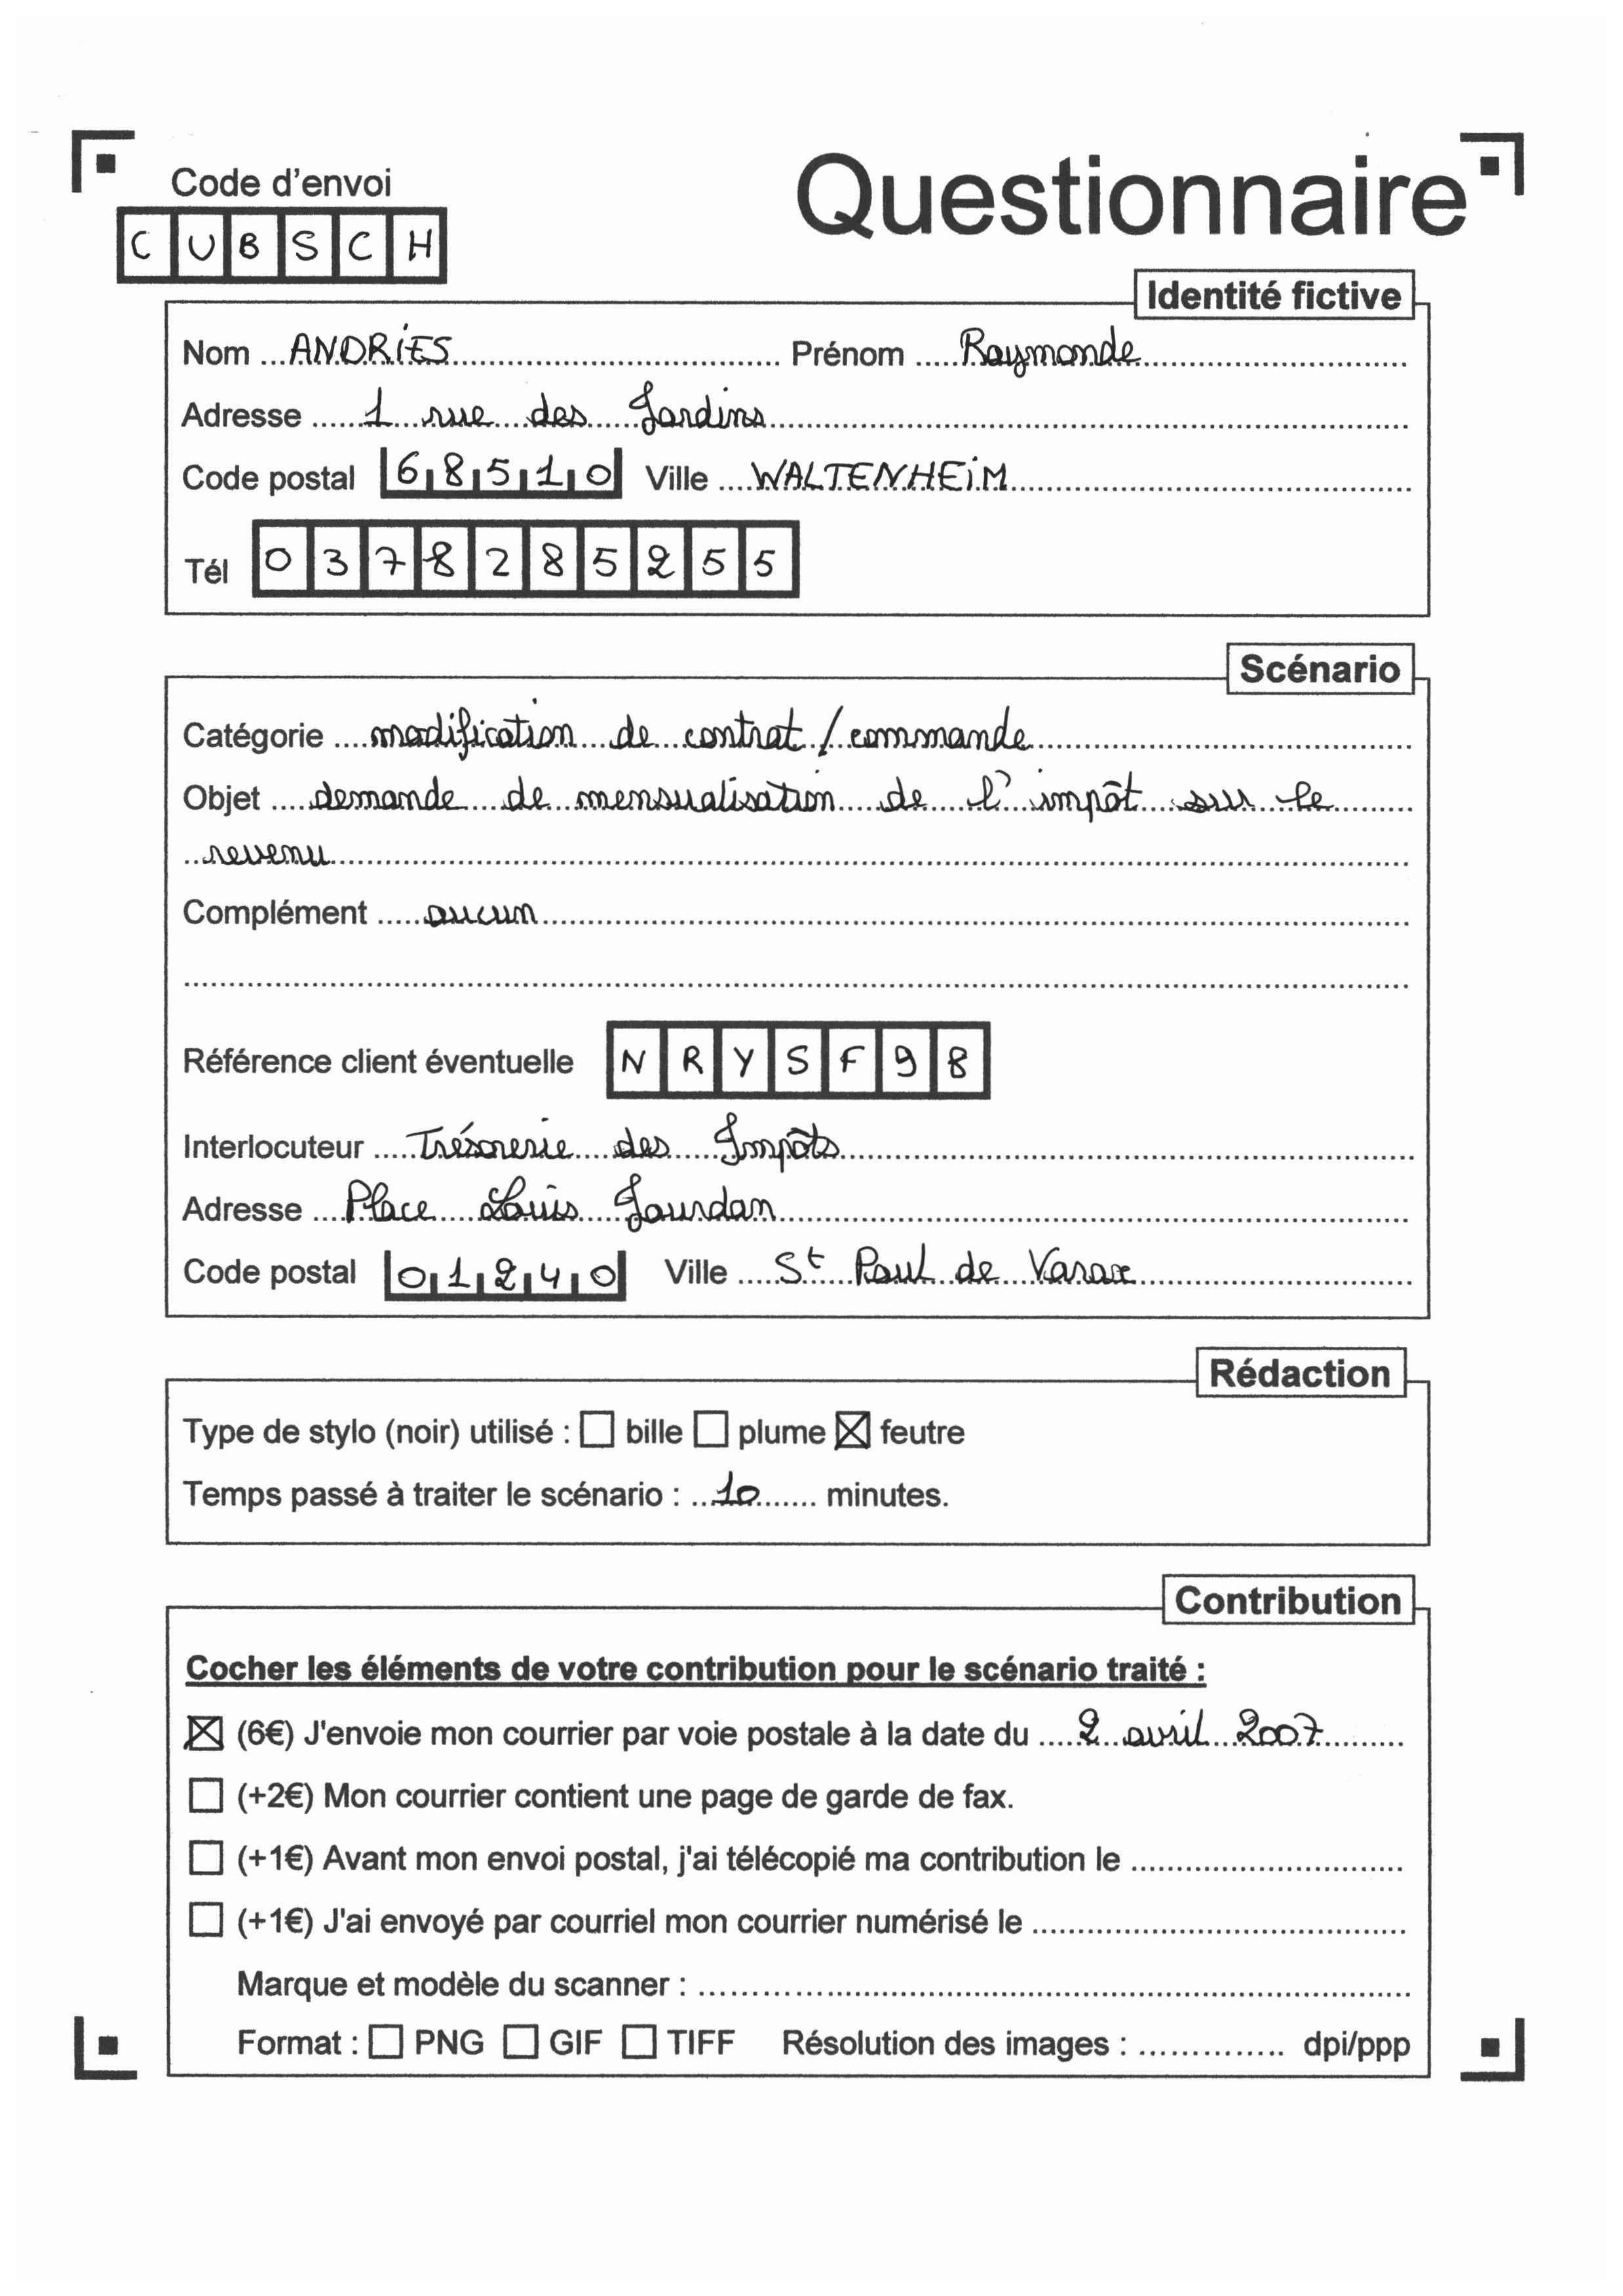 Code d'envoi
Questionnaire
C U B S C H
Identité fictive
Nom ... ANDRIES ... Prénom ... Raymonde
Adresse ... 1 rue des Jardins
Code postal 68510 Ville ... WALTENHEIM
Tél 0378285255
Scénario
Catégorie ... modification de contrat / commande
Objet ... demande de mensualisation de l'impôt sur le
revenu
Complément ... aucun
Référence client éventuelle N R Y S F 9 8
Interlocuteur ... Trésorerie des Impôts
Adresse ... Place Louis Jourdan
Code postal 01240 Ville ... St Paul de Varax
Rédaction
Type de stylo (noir) utilisé : ☐ bille ☐ plume ☒ feutre
Temps passé à traiter le scénario : ... 10 ... minutes.
Contribution
Cocher les éléments de votre contribution pour le scénario traité :
☒ (6€) J'envoie mon courrier par voie postale à la date du ... 2 avril 2007
☐ (+2€) Mon courrier contient une page de garde de fax.
☐ (+1€) Avant mon envoi postal, j'ai télécopié ma contribution le ...
☐ (+1€) J'ai envoyé par courriel mon courrier numérisé le ...
Marque et modèle du scanner : ...
Format : ☐ PNG ☐ GIF ☐ TIFF Résolution des images : ... dpi/ppp